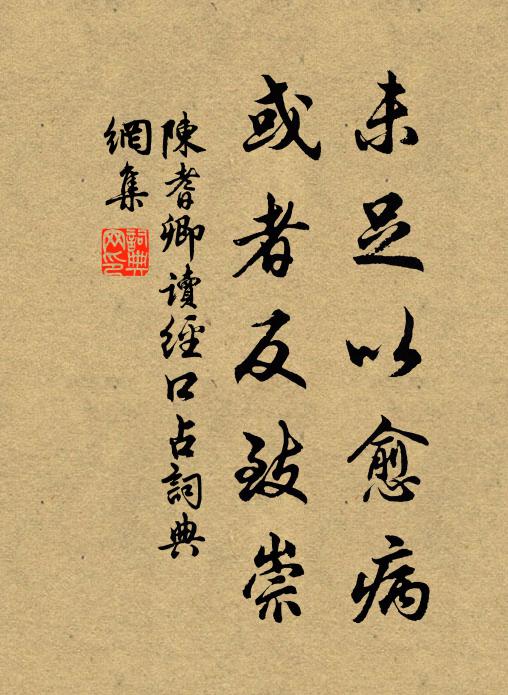 未足以愈病
或者反致崇
陳耆卿讀經口占詞典
網集
詞典
网印